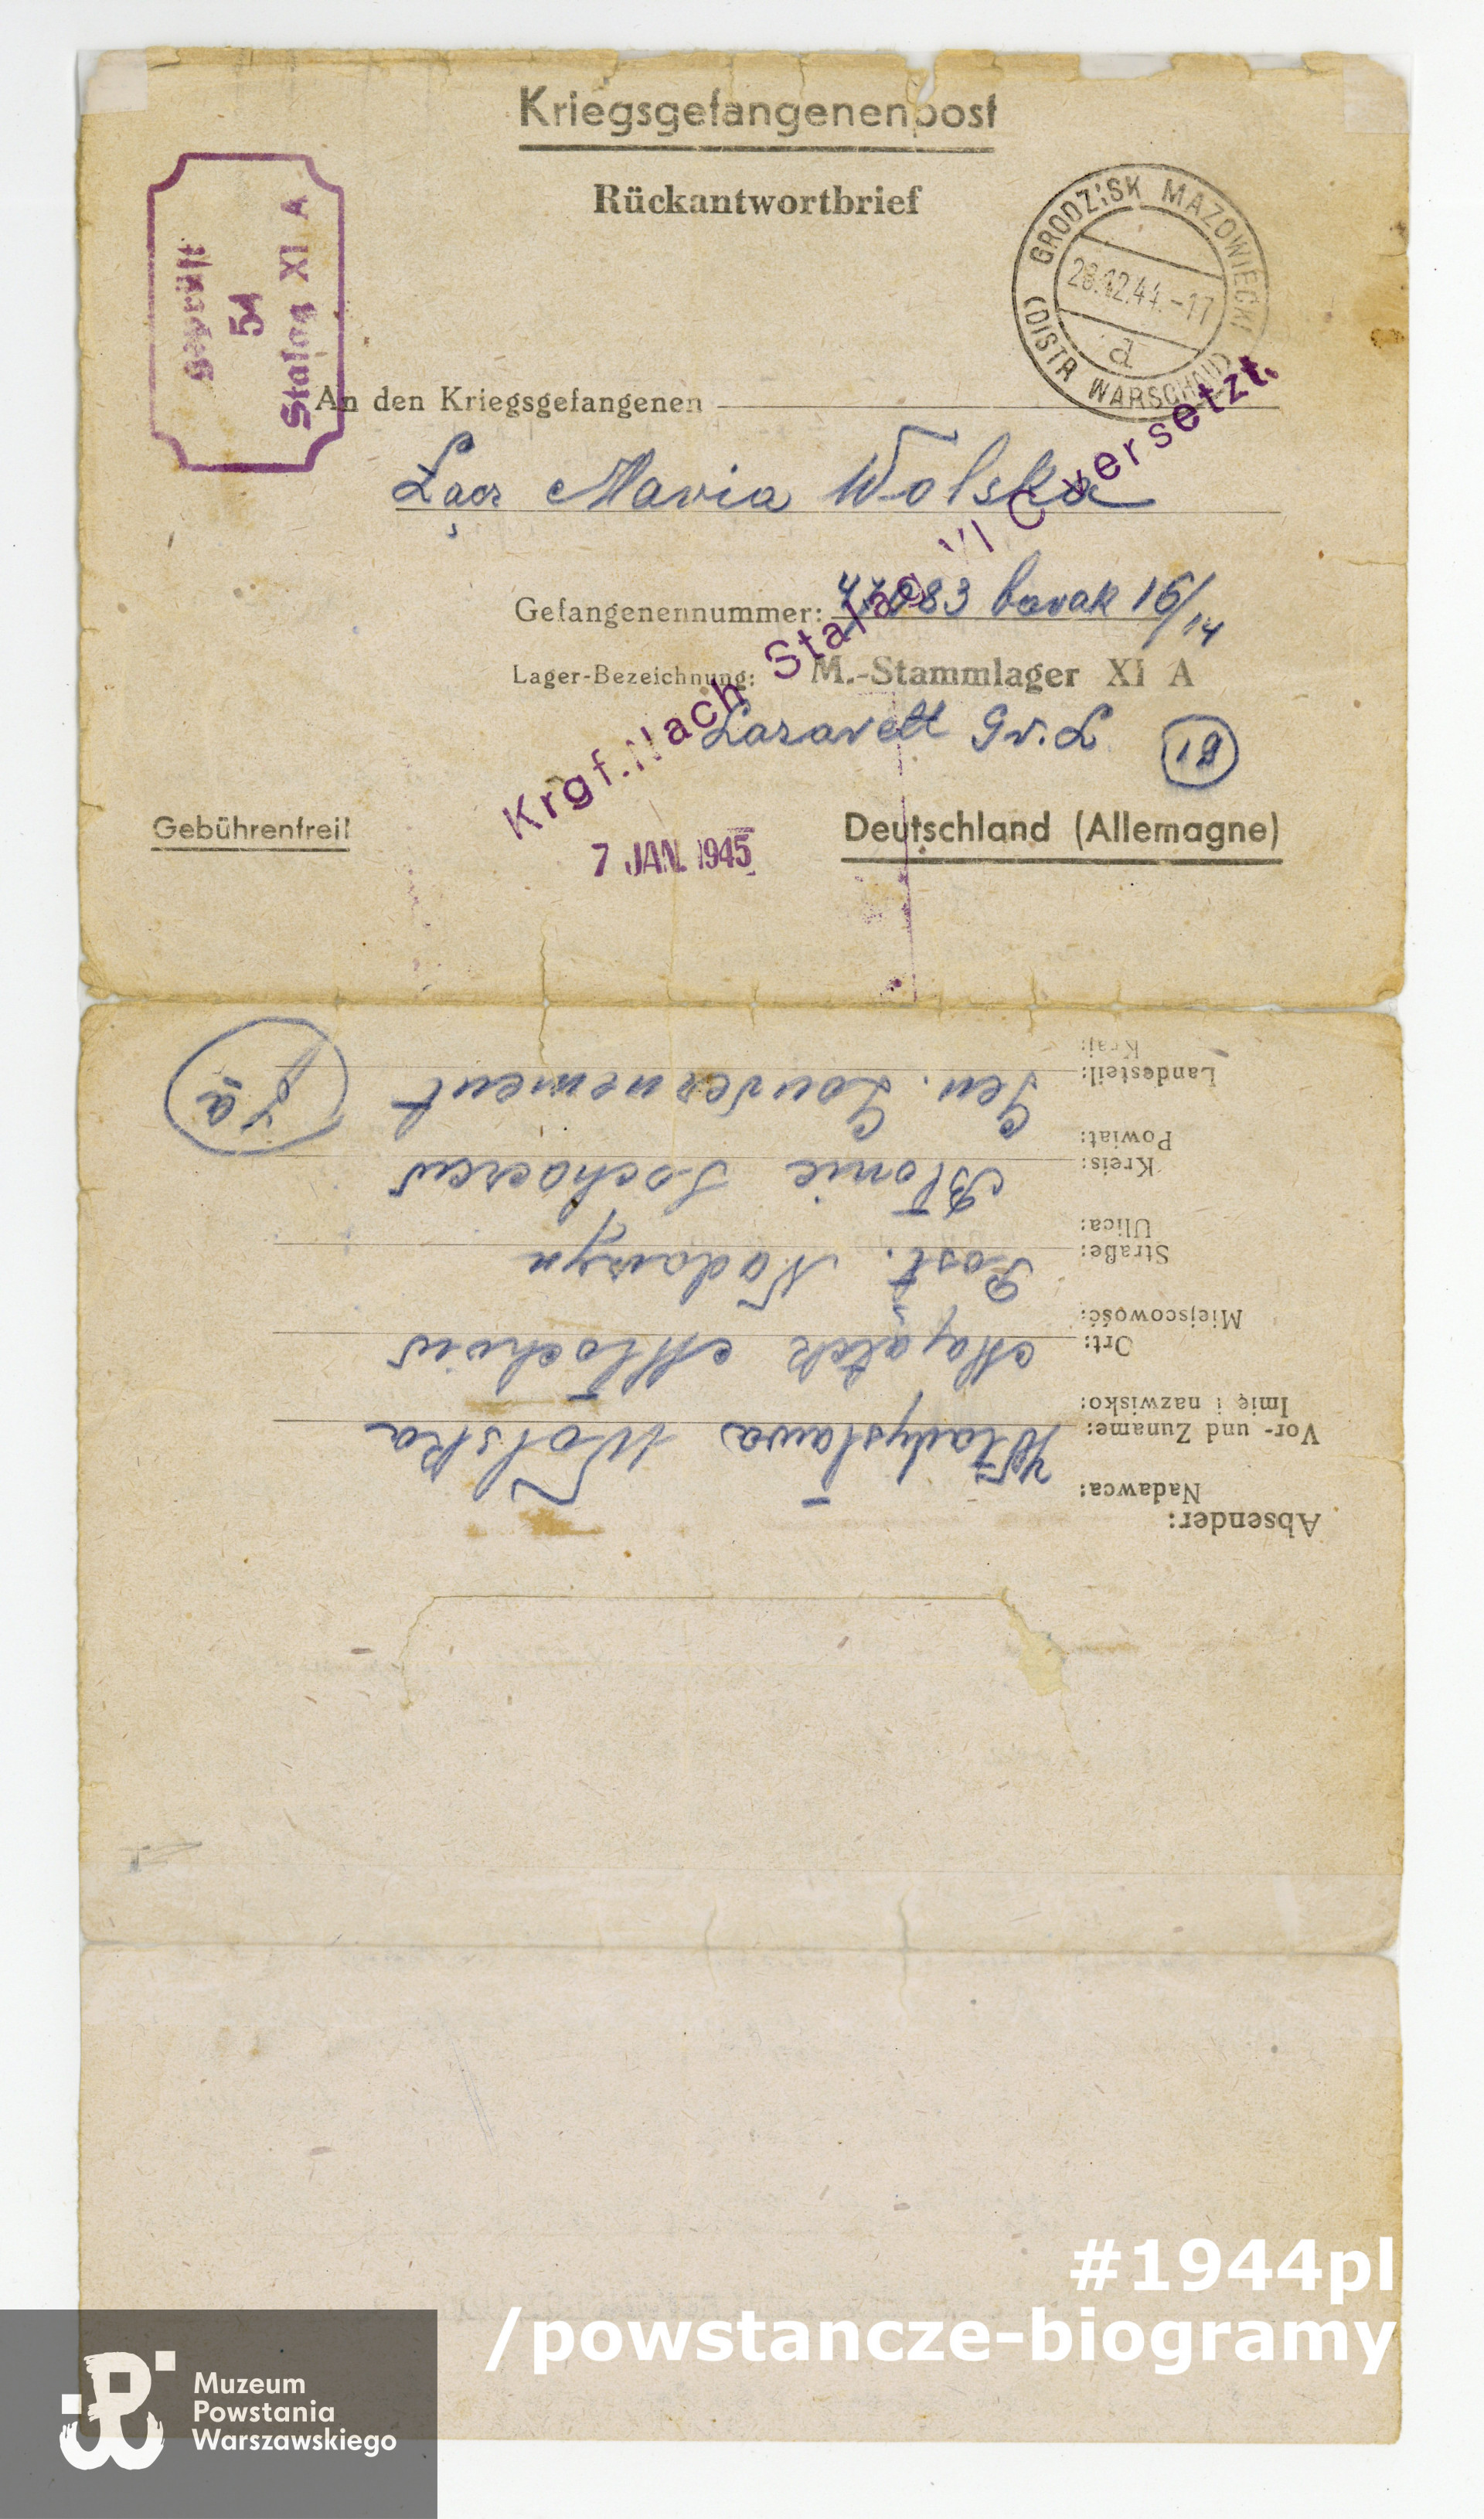 Kriegsgefangenenpost
Rückantwortbrief
GRODZISK MAZOWIECKI
(DISTR WARSCHAU)
28.12.44.-17
a
geprüft
54
Stalag XI A
An den Kriegsgefangenen
Maria Wolska
Gefangenennummer: 83 barak 16/14
Lager-Bezeichnung: M.-Stammlager XI A
Lazarett Gr. L
Krgf. Nach Stalag VI C versetzt.
Gebührenfrei!
7 JAN. 1945
Deutschland (Allemagne)
Absender:
Nadawca:
Vor- und Zuname: Władysława Wolska
Imię i nazwisko:
Ort: Majątek Młochów
Miejscowość:
Straße: Post. Nadarzyn
Ulica:
Kreis: Błonie Sochaczew
Powiat:
Landesteil: Gen. Gouvernement
Kraj:
#1944pl
/powstancze-biogramy
Muzeum
Powstania
Warszawskiego